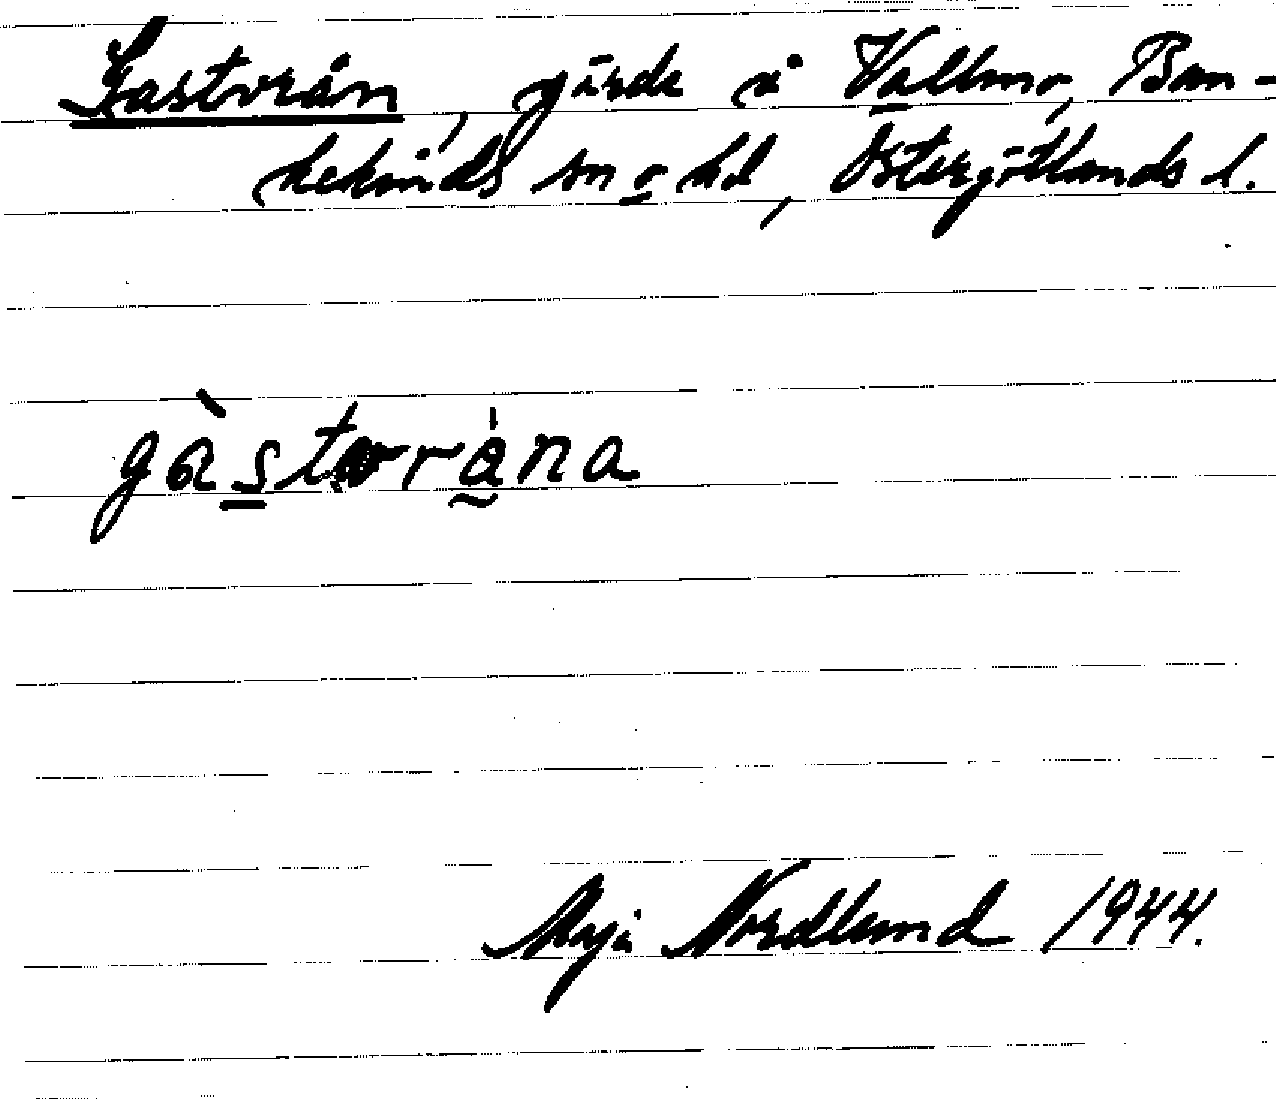 Gastvrån, gärde å Vallmo, Ban-
kekinds sn o hd, Östergötlands l.
gàstvråna
Maja Nordlund 1944.